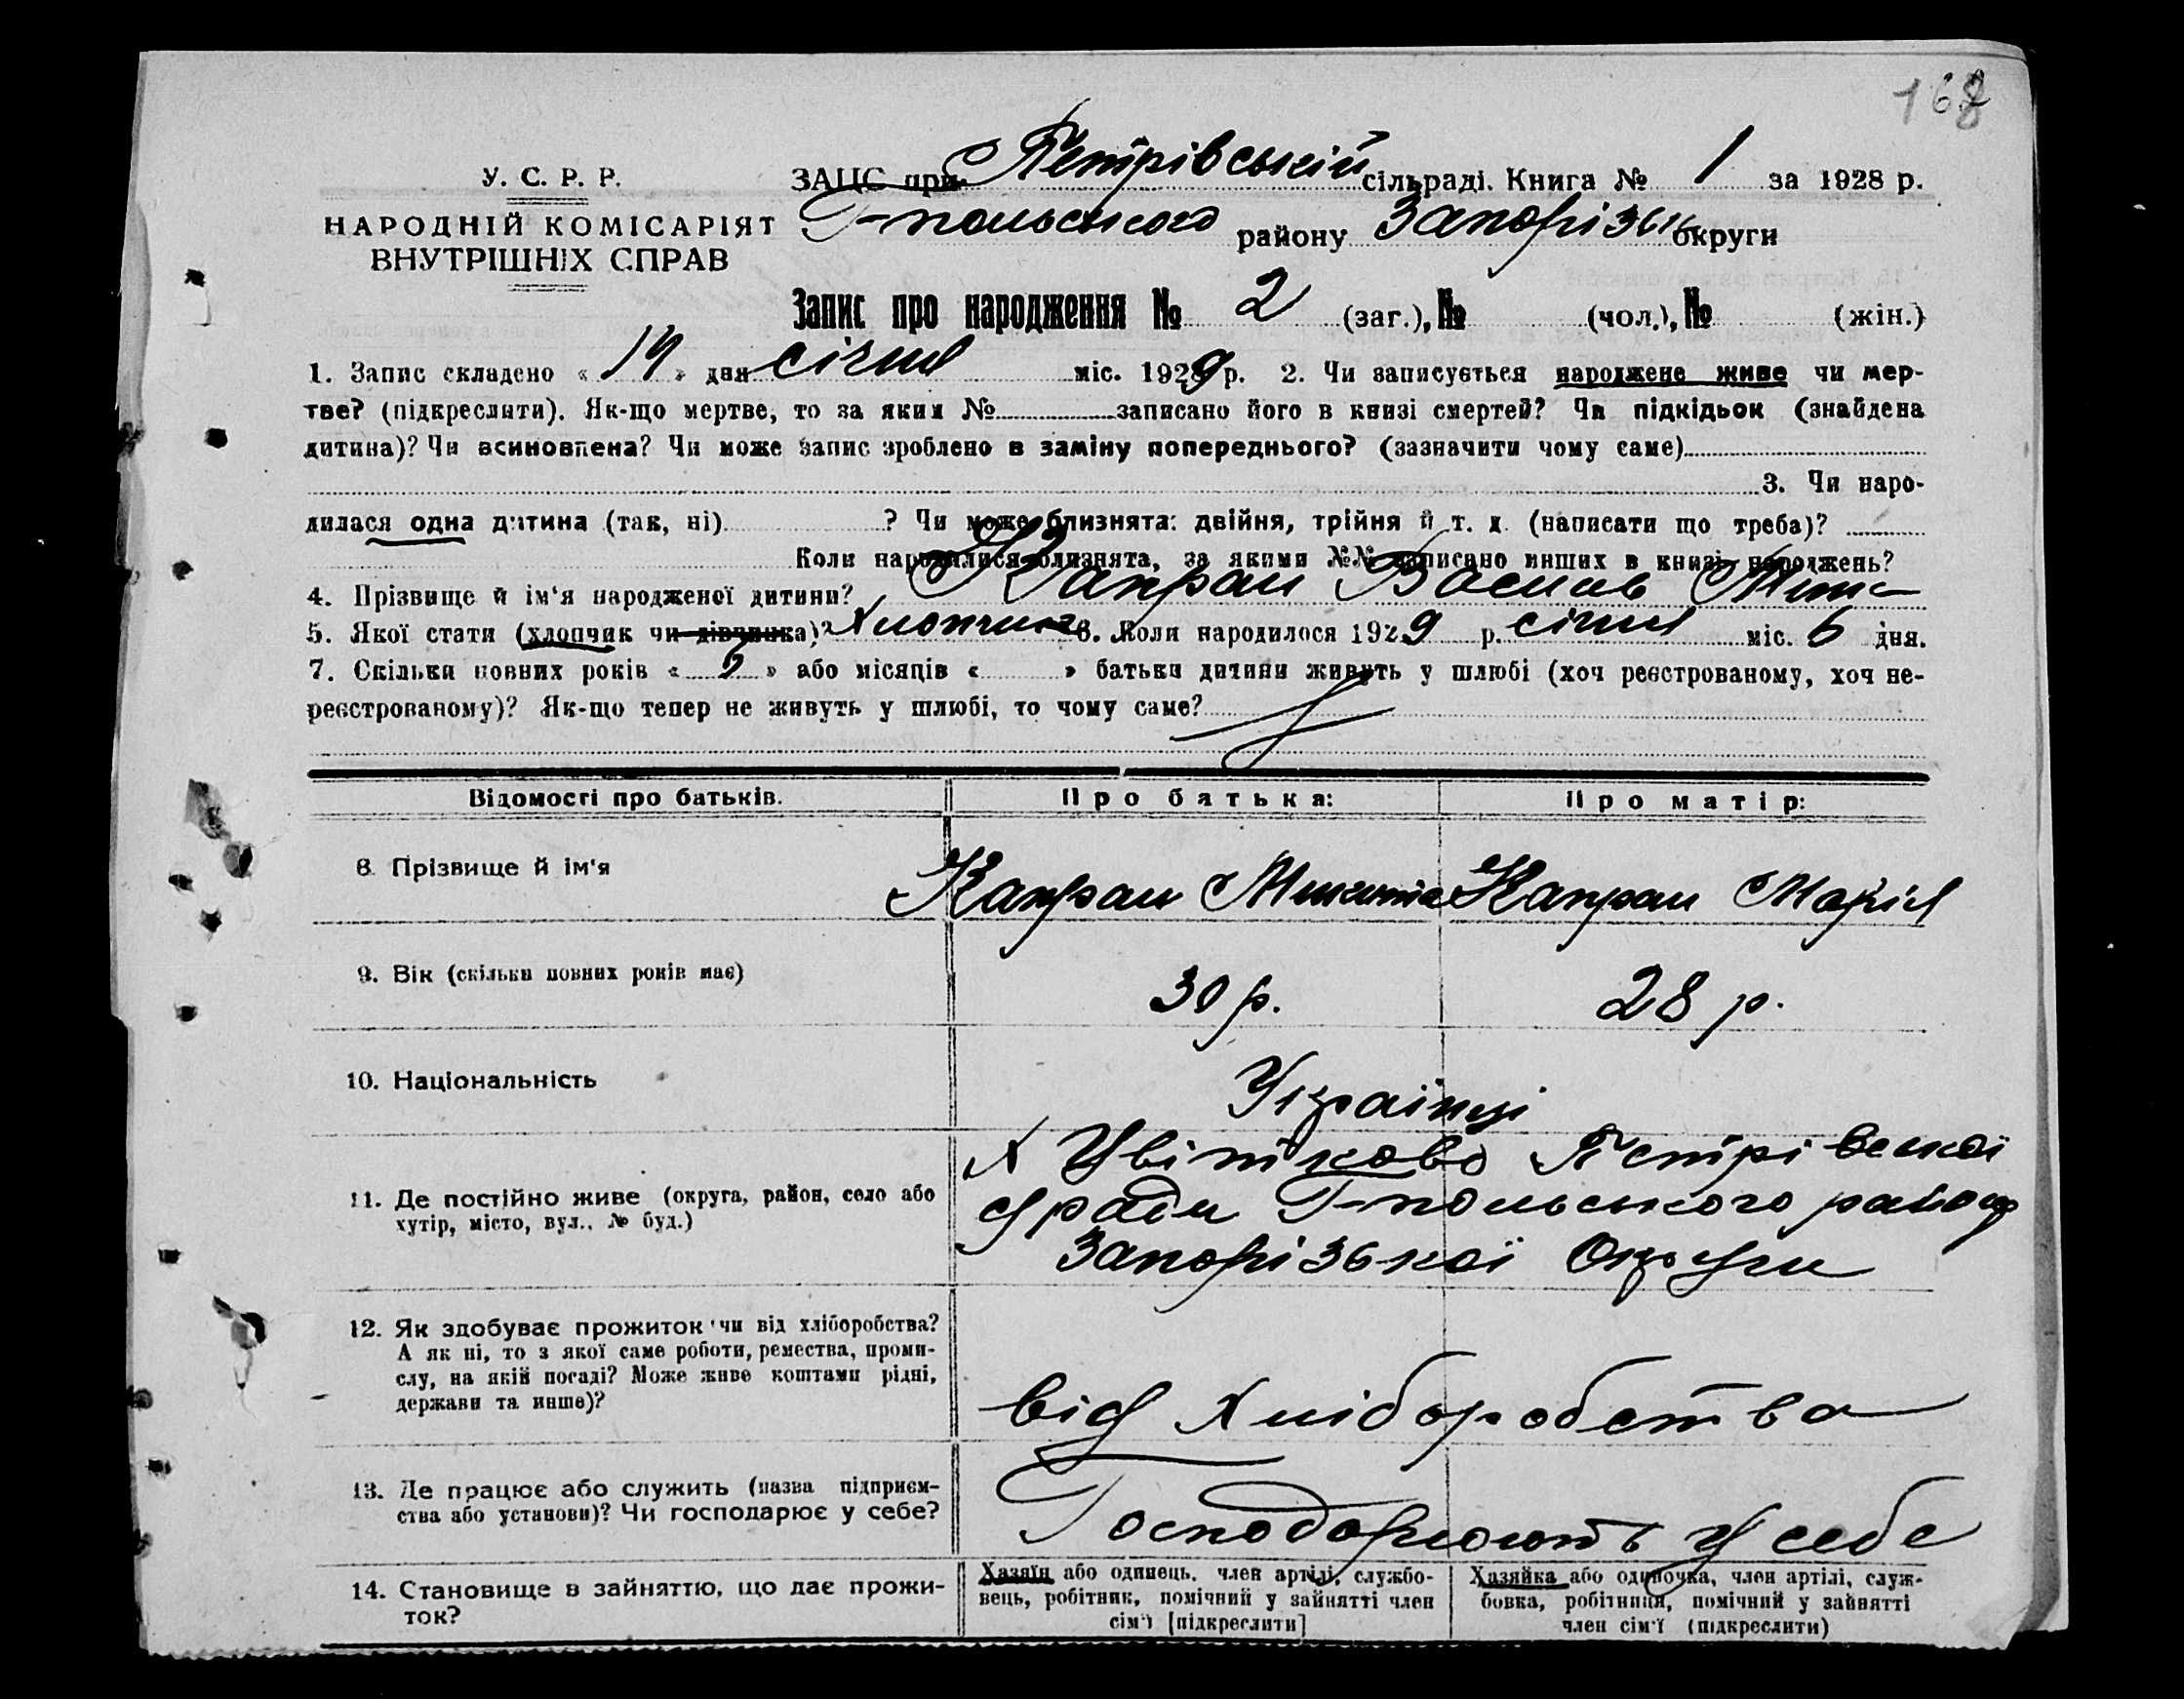 168
У. С. Р. Р.
НАРОДНІЙ КОМІСАРІЯТ
ВНУТРІШНІХ СПРАВ
ЗАЦС при Петрівській сільраді. Книга № 1 за 1928 р.
Г-польського району Запорізьк округи
Запис про народження № 2 (заг.), № (чол.), № (жін.)
1. Запис складено « 14 » дня січня міс. 1929 р. 2. Чи записується народжене живе чи мер-
тве? (підкреслити). Як-що мертве, то за яким № записано його в книзі смертей? Чи підкідьок (знайдена
дитина)? Чи всиновлена? Чи може запис зроблено в заміну попереднього? (зазначити чому саме)
3. Чи наро-
дилася одна дитина (так, ні) ? Чи може близнята: двійня, трійня й т. д. (написати що треба)?
Коли народилися близнята, за якими №№ записано инших в книзі народжень?
4. Прізвище й ім'я народженої дитини? Капран Василь Мик-
5. Якої стати (хлопчик чи дівчинка)? Хлопчик 6. Коли народилося 1929 р. січня міс. 6 дня.
7. Скільки повних років « » або місяців « » батьки дитини живуть у шлюбі (хоч реєстрованому, хоч не-
реєстрованому)? Як-що тепер не живуть у шлюбі, то чому саме?
Відомості про батьків. Про батька: Про матір:
8. Прізвище й ім'я Капран Микита Капран Марія
9. Вік (скільки повних років має) 30 р. 28 р.
10. Національність Українці
11. Де постійно живе (округа, район, село або
хутір, місто, вул., № буд.)
Х Цвітково Петрівської
с/ради Г-польського району
Запорізької Округи
12. Як здобуває прожиток чи від хліборобства?
А як ні, то з якої саме роботи, ремества, проми-
слу, на якій посаді? Може живе коштами рідні,
держави та инше)?
від Хліборобства
13. Де працює або служить (назва підприєм-
ства або установи)? Чи господарює у себе?
Господарюють у себе
14. Становище в зайняттю, що дає прожи-
ток?
Хазяїн або одинець, член артілі, службо-
вець, робітник, помічний у зайнятті член
сім'ї [підкреслити]
Хазяйка або одиночка, член артілі, служ-
бовка, робітниця, помічний у зайнятті
член сім'ї (підкреслити)